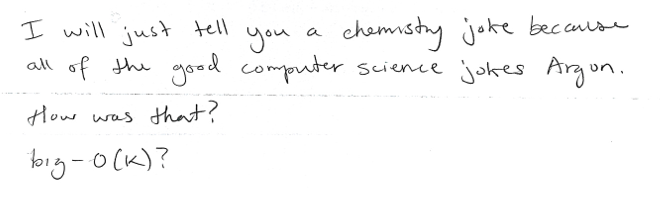 I will just tell you a chemistry joke because
all of the good computer science jokes Argon.
How was that?
big-O(K)?